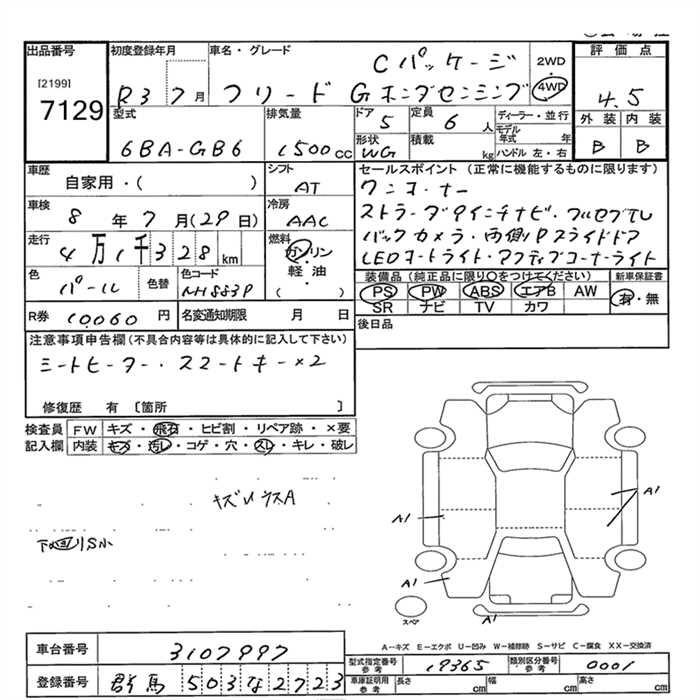 出品番号 初度登録年月 車名・グレード Cパッケージ 2WD 評価点
[2199]
7129 R3 7月 フリード Gホンダセンシング 4WD 4.5
型式 排気量 ドア 5 定員 6人 ディーラー・並行 外装 内装
6BA-GB6 1500cc 形状 WG 積載 kg モデル年式 年 ハンドル 左・右 B B
車歴 自家用・( ) シフト AT セールスポイント (正常に機能するものに限ります)
ワンオーナー
車検 8年7月(29日) 冷房 AAC ストラーダ9インチナビ・フルセグTV
走行 4万1千328km 燃料 ガソリン・軽油・( ) バックカメラ・両側Pスライドドア
LEDヘッドライト・アクティブコーナーライト
色 パール 色替 色コード NH883P 装備品 (純正品に限り○をつけてください) 新車保証書
PS PW ABS エアB AW 有・無
SR ナビ TV カワ
R券 10060円 名変通知期限 月 日 後日品
注意事項申告欄(不具合内容等は具体的に記入して下さい)
シートヒーター・スマートキー×2
修復歴 有 〔箇所 〕
検査員 FW キズ・飛石・ヒビ割・リペア跡・×要
記入欄 内装 キズ・汚レ・コゲ・穴・スレ・キレ・破レ
キズレウスA
A1
A1
下回リS小
A1
スペア
A1
A-キズ E-エクボ U-凹み W-補修跡 S-サビ C-腐食 XX-交換済
車台番号 3107997 型式指定番号 参考 19365 類別区分番号 参考 0001
登録番号 群馬503な2723 車庫証明用 参考 長さ cm 幅 cm 高さ cm